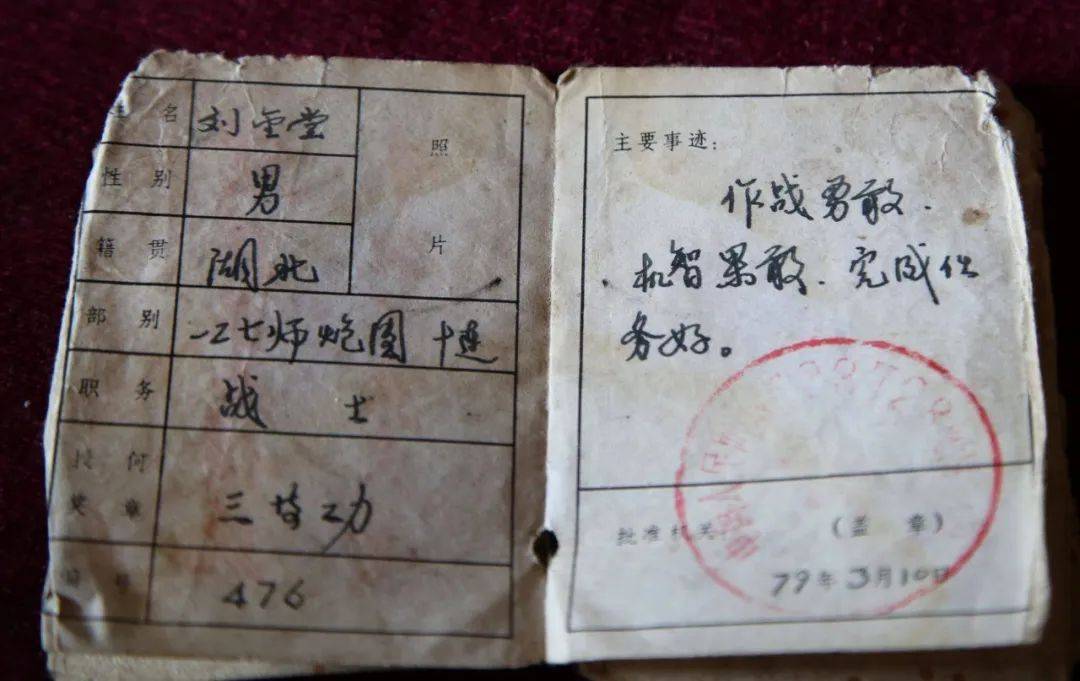 姓名 刘金堂
照片
性别 男
籍贯 湖北
部别 一二七师炮团十连
职务 战士
授何奖章 三等功
476
主要事迹:
作战勇敢.
机智果敢.完成任
务好。
批准机关 (盖 章)
79年3月10日